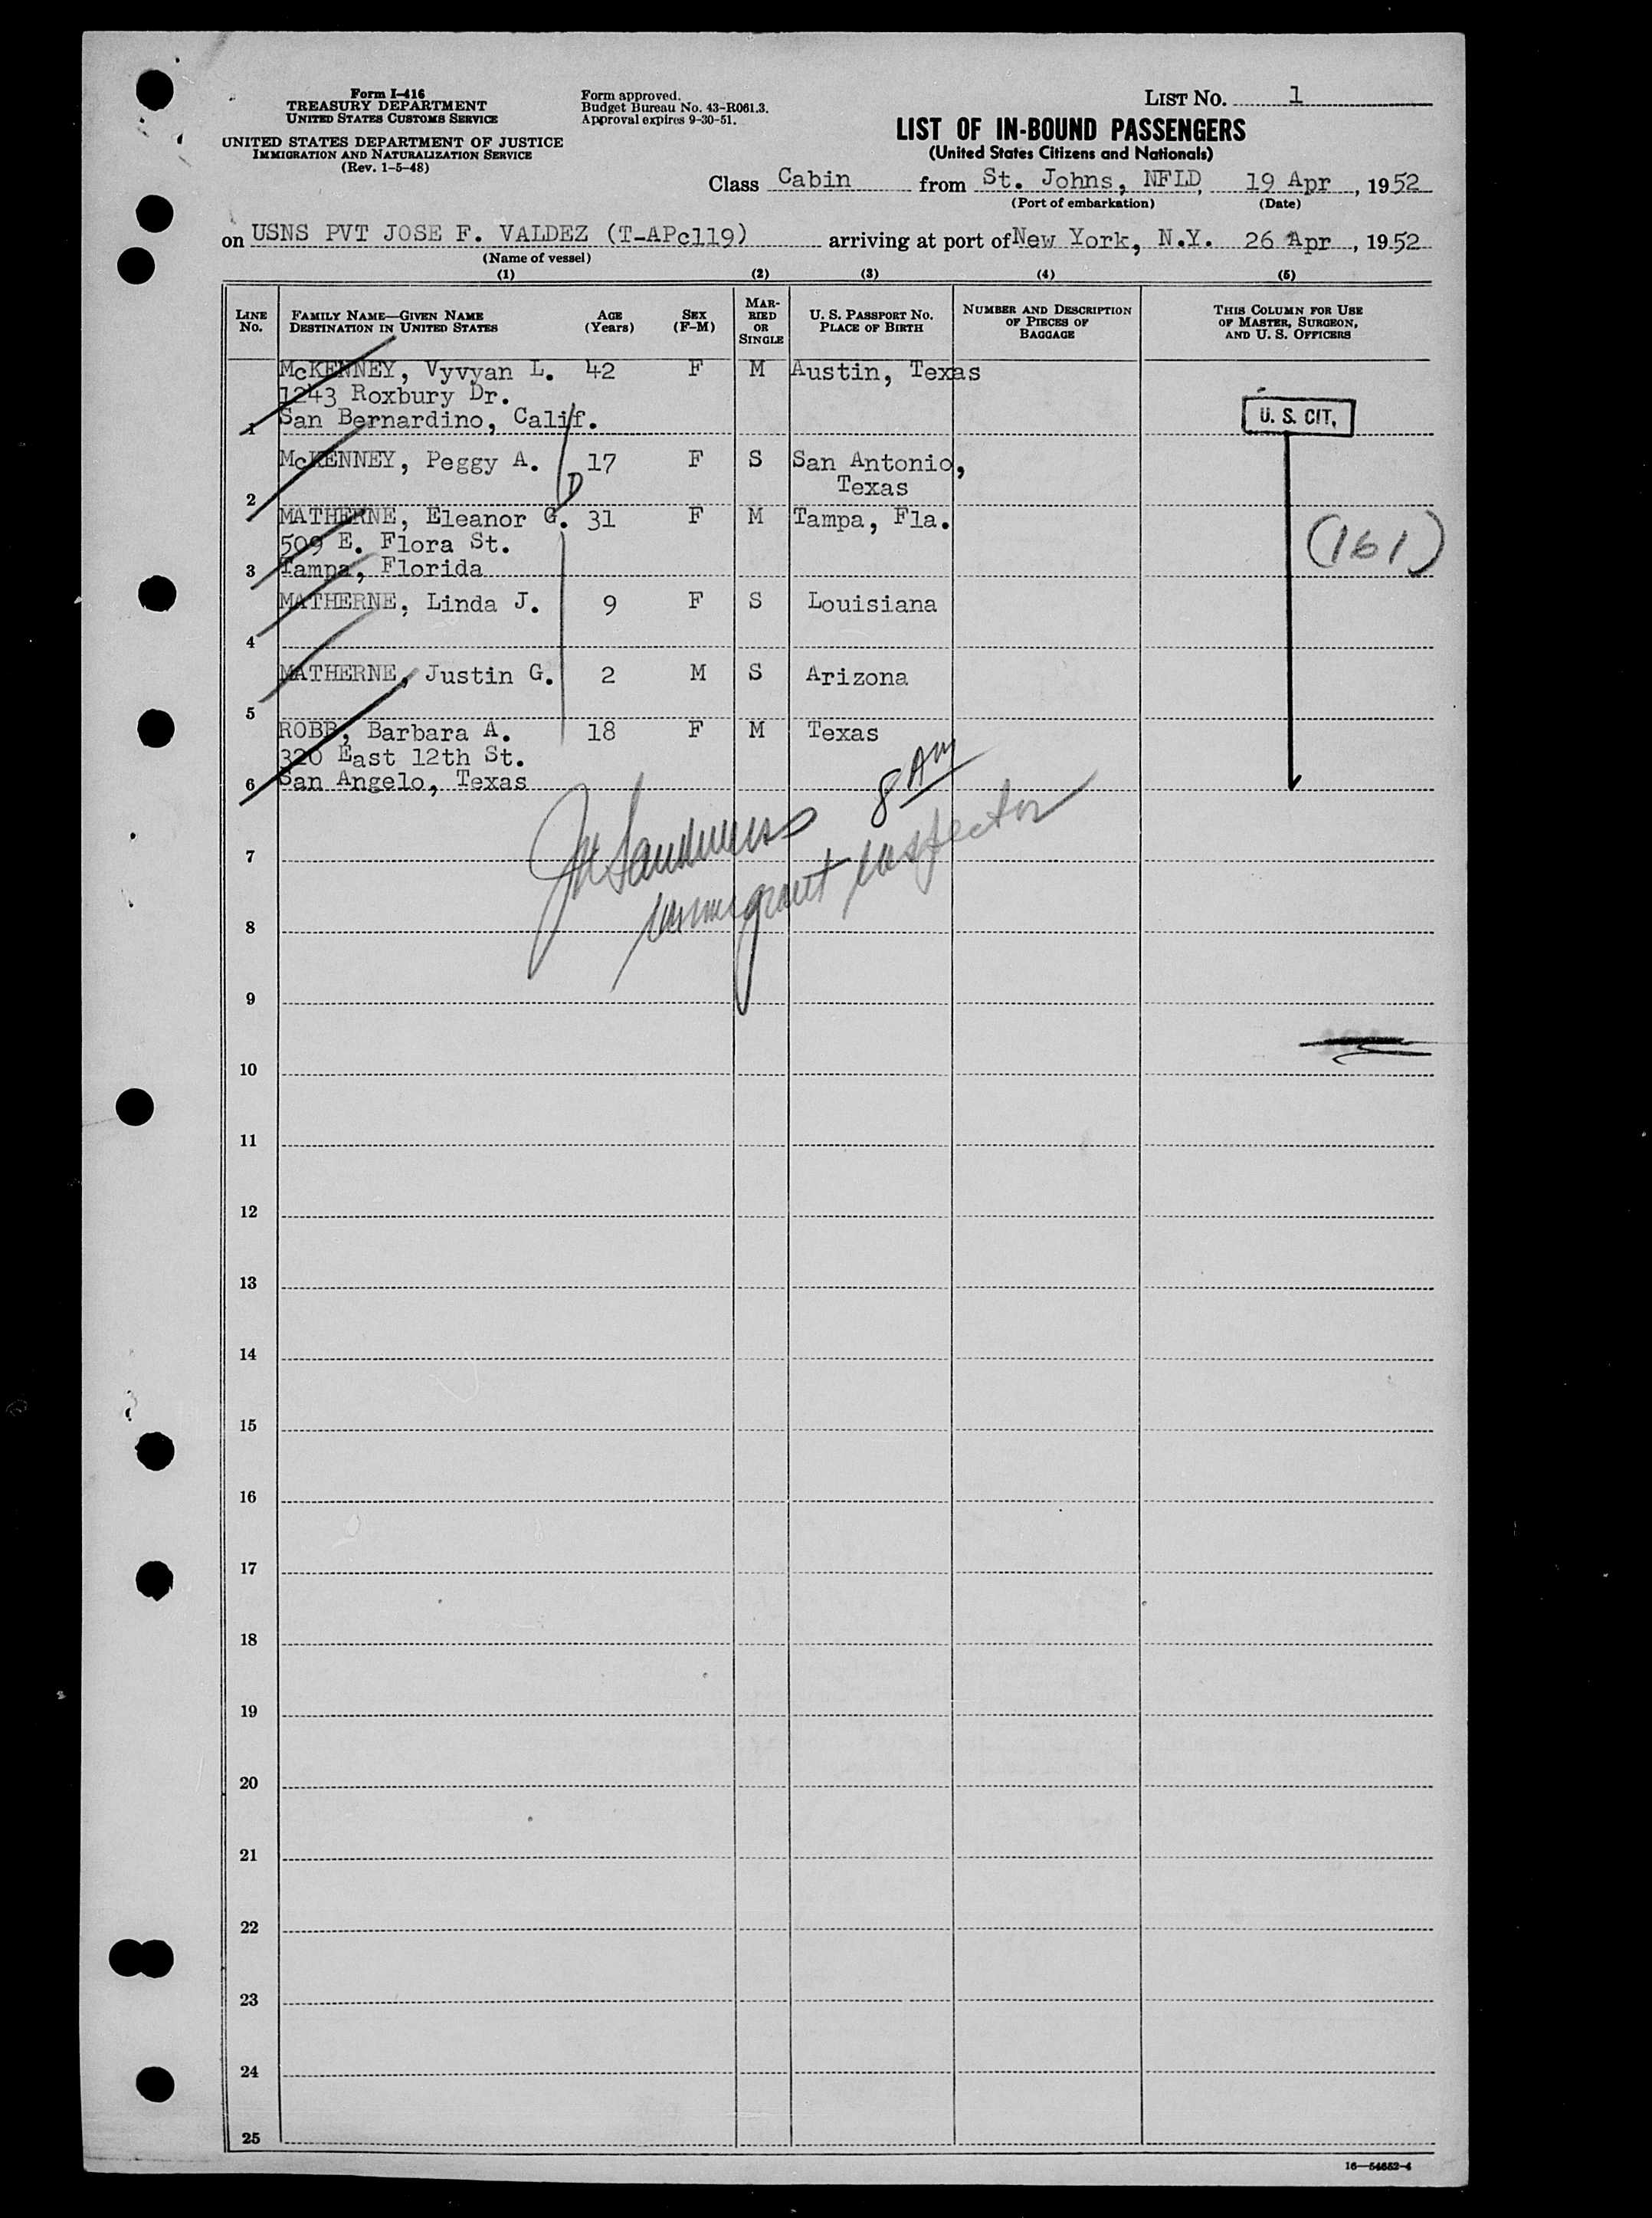 Form I-416
TREASURY DEPARTMENT
UNITED STATES CUSTOMS SERVICE
UNITED STATES DEPARTMENT OF JUSTICE
IMMIGRATION AND NATURALIZATION SERVICE
(Rev. 1-5-48)
Form approved.
Budget Bureau No. 43-R061.3.
Approval expires 9-30-51.
LIST NO. 1
LIST OF IN-BOUND PASSENGERS
(United States Citizens and Nationals)
Class Cabin from St. Johns, NFLD, 19 Apr, 1952
(Port of embarkation) (Date)
on USNS PVT JOSE F. VALDEZ (T-APc119) arriving at port of New York, N.Y. 26 Apr, 1952
(Name of vessel)
(1) (2) (3) (4) (5)
LINE NO.
FAMILY NAME—GIVEN NAME
DESTINATION IN UNITED STATES
AGE
(YEARS)
SEX
(F-M)
MARRIED OR SINGLE
U. S. PASSPORT NO.
PLACE OF BIRTH
NUMBER AND DESCRIPTION
OF PIECES OF
BAGGAGE
THIS COLUMN FOR USE
OF MASTER, SURGEON,
AND U. S. OFFICERS
McKENNEY, Vyvyan L. 42 F M Austin, Texas
1243 Roxbury Dr.
1 San Bernardino, Calif.
U. S. CIT.
McKENNEY, Peggy A. 17 F S San Antonio,
Texas
D
2
MATHERNE, Eleanor G. 31 F M Tampa, Fla.
509 E. Flora St.
3 Tampa, Florida
(161)
MATHERNE, Linda J. 9 F S Louisiana
4
MATHERNE, Justin G. 2 M S Arizona
5
ROBB, Barbara A. 18 F M Texas
320 East 12th St.
6 San Angelo, Texas
8 AM
immigrant inspector
7
8
9
10
11
12
13
14
15
16
17
18
19
20
21
22
23
24
25
16—54652-4